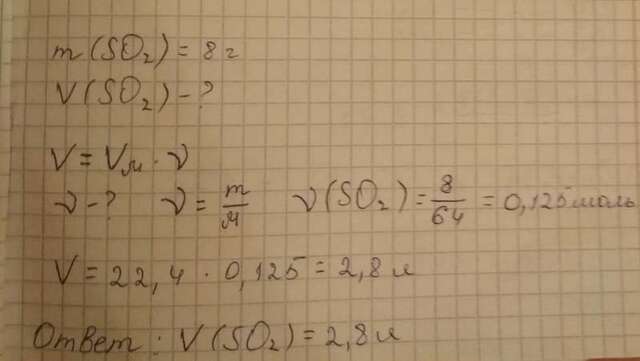 m(SO₂) = 8 г
V(SO₂) – ?
V = Vм · ν
ν – ? ν = m/M ν(SO₂) = 8/64 = 0,125 моль
V = 22,4 · 0,125 = 2,8 л
Ответ: V(SO₂) = 2,8 л